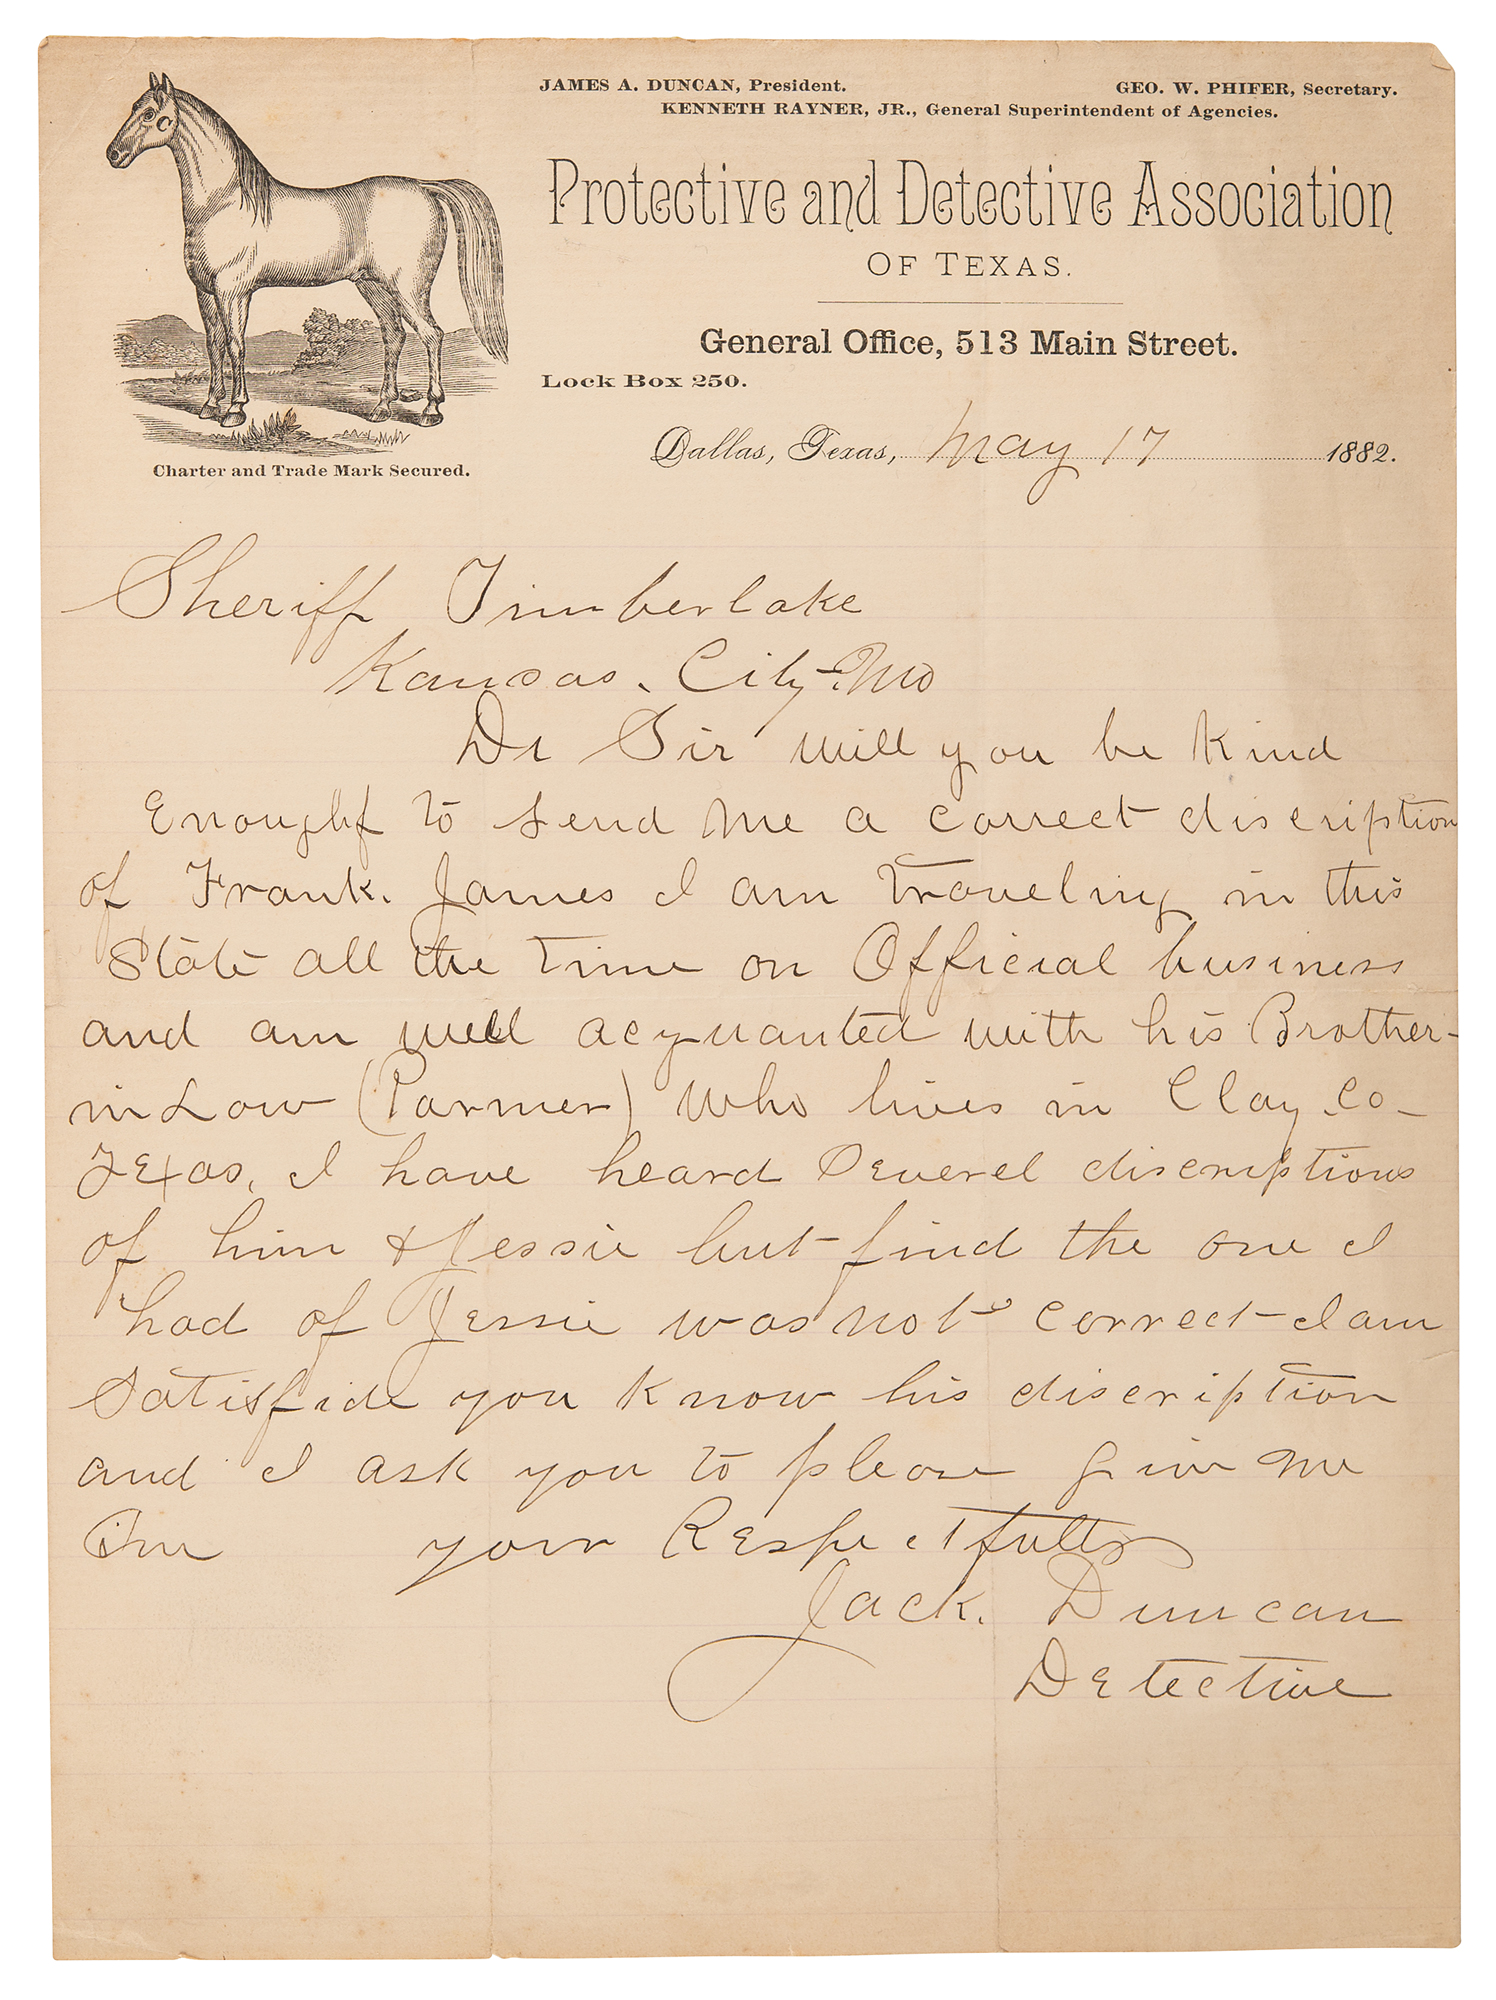 JAMES A. DUNCAN, President. GEO. W. PHIFER, Secretary.
KENNETH RAYNER, JR., General Superintendent of Agencies.
Protective and Detective Association
OF TEXAS.
General Office, 513 Main Street.
Lock Box 250.
Dallas, Texas, May 17 1882.
Charter and Trade Mark Secured.
Sheriff Timberlake
Kansas. City. Mo
Dr Sir will you be Kind
Enoughf to send me a correct discription
of Frank. James I am Traveling in this
State all the Time on Official business
and am well acquanted with his Brother-
in Low (Parmer) who lives in Clay Co-
Texas. I have heard Severel discriptions
of him & Jessie but find the one I
had of Jessie was not correct I am
Satisfide you Know his discription
and I ask you to please give me
your Respectfully
Jack. Duncan
Detective